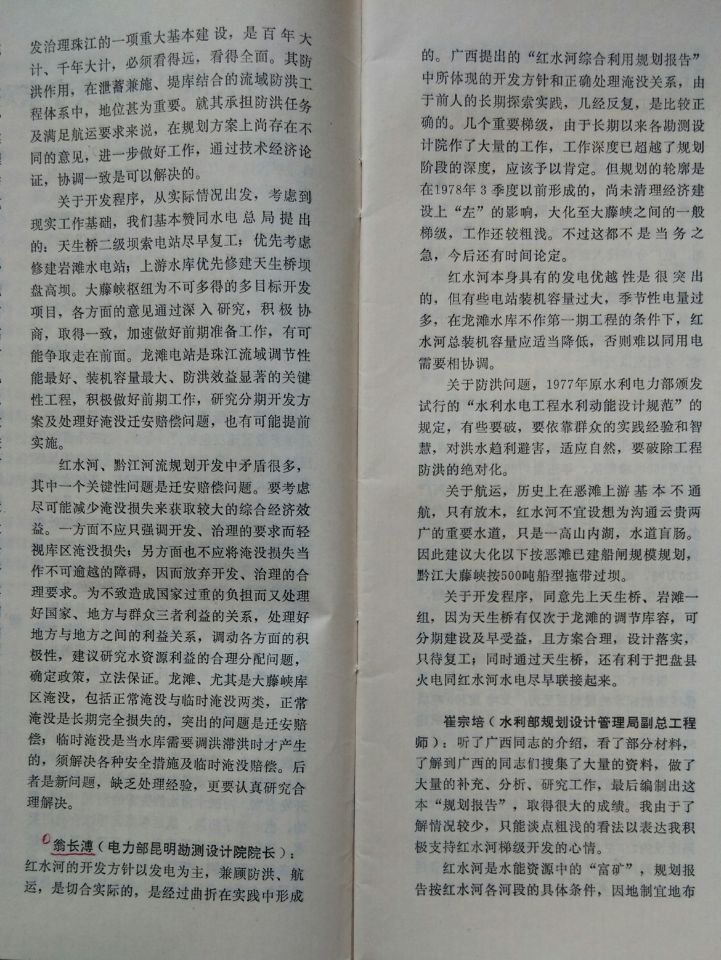 发治理珠江的一项重大基本建设，是百年大
计、千年大计，必须看得远，看得全面。其防
洪作用，在泄蓄兼施、堤库结合的流域防洪工
程体系中，地位甚为重要。就其承担防洪任务
及满足航运要求来说，在规划方案上尚存在不
同的意见，进一步做好工作，通过技术经济论
证，协调一致是可以解决的。
关于开发程序，从实际情况出发，考虑到
现实工作基础，我们基本赞同水电总局提出
的：天生桥二级坝索电站尽早复工；优先考虑
修建岩滩水电站；上游水库优先修建天生桥坝
盘高坝。大藤峡枢纽为不可多得的多目标开发
项目，各方面的意见通过深入研究，积极协
商，取得一致，加速做好前期准备工作，有可
能争取走在前面。龙滩电站是珠江流域调节性
能最好、装机容量最大、防洪效益显著的关键
性工程，积极做好前期工作，研究分期开发方
案及处理好淹没迁安赔偿问题，也有可能提前
实施。
红水河、黔江河流规划开发中矛盾很多，
其中一个关键性问题是迁安赔偿问题。要考虑
尽可能减少淹没损失来获取较大的综合经济效
益。一方面不应只强调开发、治理的要求而轻
视库区淹没损失；另方面也不应将淹没损失当
作不可逾越的障碍，因而放弃开发、治理的合
理要求。为不致造成国家过重的负担而又处理
好国家、地方与群众三者利益的关系，处理好
地方与地方之间的利益关系，调动各方面的积
极性，建议研究水资源利益的合理分配问题，
确定政策，立法保证。龙滩、尤其是大藤峡库
区淹没，包括正常淹没与临时淹没两类，正常
淹没是长期完全损失的，突出的问题是迁安赔
偿；临时淹没是当水库需要调洪滞洪时才产生
的，须解决各种安全措施及临时淹没赔偿。后
者是新问题，缺乏处理经验，更要认真研究合
理解决。
翁长溥（电力部昆明勘测设计院院长）：
红水河的开发方针以发电为主，兼顾防洪、航
运，是切合实际的，是经过曲折在实践中形成
的。广西提出的“红水河综合利用规划报告”
中所体现的开发方针和正确处理淹没关系，由
于前人的长期探索实践，几经反复，是比较正
确的。几个重要梯级，由于长期以来各勘测设
计院作了大量的工作，工作深度已超越了规划
阶段的深度，应该予以肯定。但规划的轮廓是
在1978年3季度以前形成的，尚未清理经济建
设上“左”的影响，大化至大藤峡之间的一般
梯级，工作还较粗浅。不过这都不是当务之
急，今后还有时间论定。
红水河本身具有的发电优越性是很突出
的，但有些电站装机容量过大，季节性电量过
多，在龙滩水库不作第一期工程的条件下，红
水河总装机容量应适当降低，否则难以同用电
需要相协调。
关于防洪问题，1977年原水利电力部颁发
试行的“水利水电工程水利动能设计规范”的
规定，有些要破，要依靠群众的实践经验和智
慧，对洪水趋利避害，适应自然，要破除工程
防洪的绝对化。
关于航运，历史上在恶滩上游基本不通
航，只有放木，红水河不宜设想为沟通云贵两
广的重要水道，只是一高山内湖，水道盲肠。
因此建议大化以下按恶滩已建船闸规模规划，
黔江大藤峡按500吨船型拖带过坝。
关于开发程序，同意先上天生桥、岩滩一
组，因为天生桥有仅次于龙滩的调节库容，可
分期建设及早受益，且方案合理，设计落实，
只待复工；同时通过天生桥，还有利于把盘县
火电同红水河水电尽早联接起来。
崔宗培（水利部规划设计管理局副总工程
师）：听了广西同志的介绍，看了部分材料，
了解到广西的同志们搜集了大量的资料，做了
大量的补充、分析、研究工作，最后编制出这
本“规划报告”，取得很大的成绩。我由于了
解情况较少，只能谈点粗浅的看法以表达我积
极支持红水河梯级开发的心情。
红水河是水能资源中的“富矿”，规划报
告按红水河各河段的具体条件，因地制宜地布